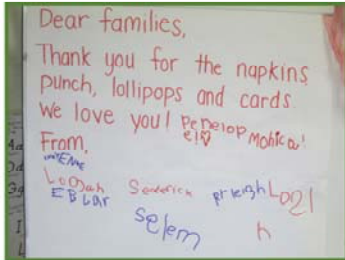 Dear families,
Thank you for the napkins
punch, lollipops and cards
We love you! Penelop Monica!
From,
Logan Sanderica prleigh Logl
EBLar
Selem h